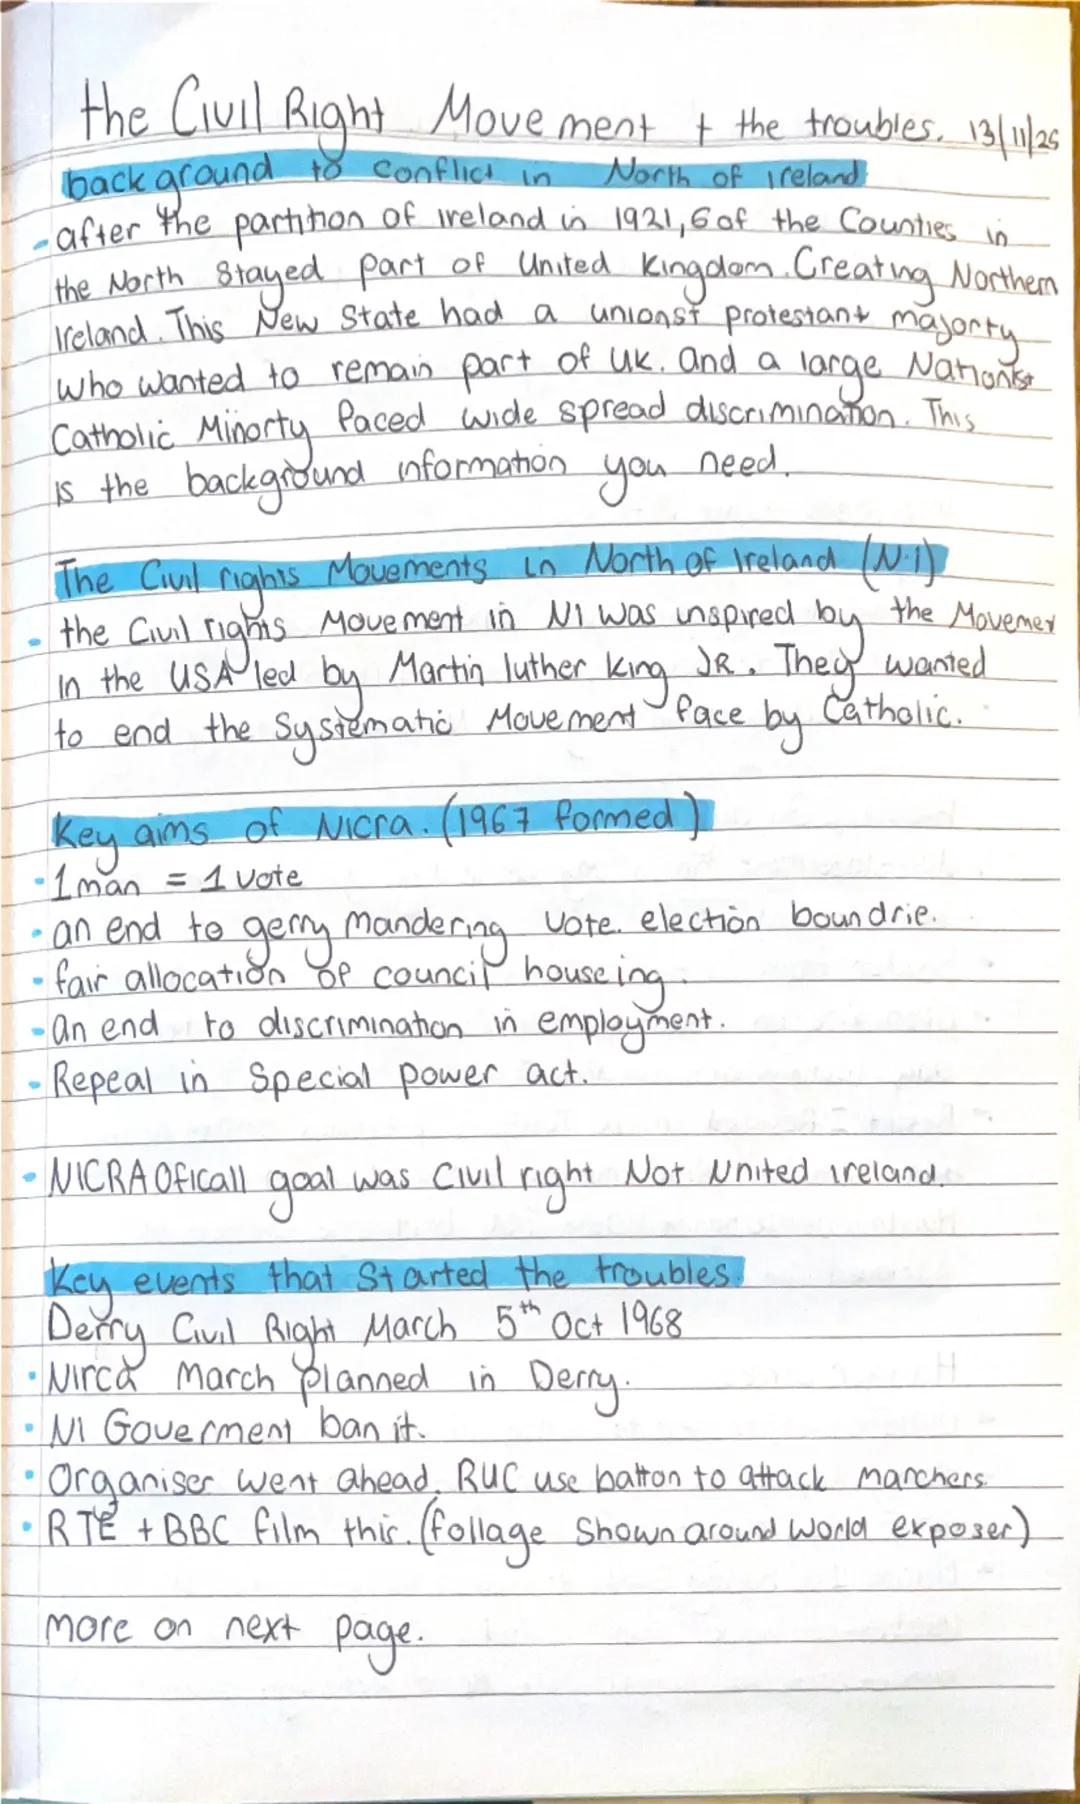 the Civil Right Movement + the troubles. 13/11/25
background to conflict in North of ireland
- after the partition of ireland in 1921, 6 of the Counties in
the North stayed part of United Kingdom. Creating Northern
Ireland. This New State had a unionst protestant majorty
who wanted to remain part of UK. and a large Nationlst
Catholic Minorty faced wide spread discrimination. This
is the background information you need.
The Civil rights Movements in North of Ireland (N.I)
- the Civil rights Movement in NI was inspired by the Movemer
in the USA led by Martin luther king JR. They wanted
to end the Systematic Movement face by Catholic.
Key aims of Nicra. (1967 formed)
- 1 man = 1 vote
- an end to gerry mandering vote. election boundrie.
- fair allocation of council houseing.
- an end to discrimination in employment.
- Repeal in Special power act.
- NICRA Oficall goal was Civil right Not United ireland.
Key events that Started the troubles.
Derry Civil Right March 5th Oct 1968
• Nirca March planned in Derry.
• NI Goverment ban it.
• Organiser went ahead. RUC use batton to attack marchers.
• RTE + BBC film this. (follage Shown around world exposer)
more on next page.